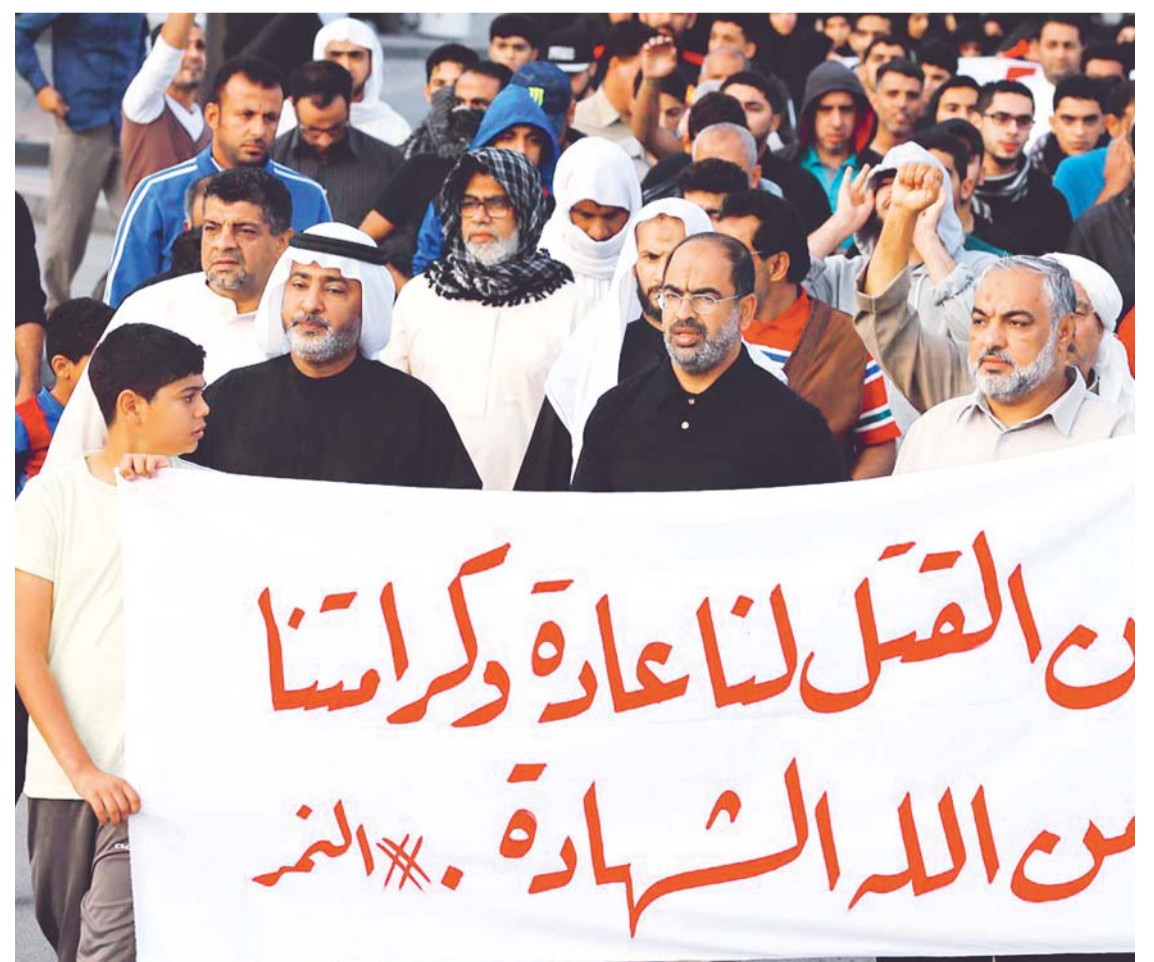 ن القتل لنا عادة وكرامتنا
من الله الشهادة . #النمر